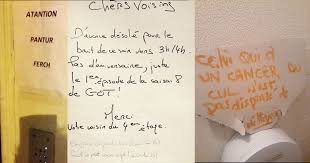 ATANTION
PANTUR
FERCH
Chers Voisins
D'avance désolé pour le
bruit de ce soir vers 3h/4h.
Pas d'anniversaire, juste
le 1er épisode de la saison 8
de GOT!
Merci
Votre voisin du 4ème étage.
Celui qui a
UN CANCER DU
CUL N'EST
PAS dispensé